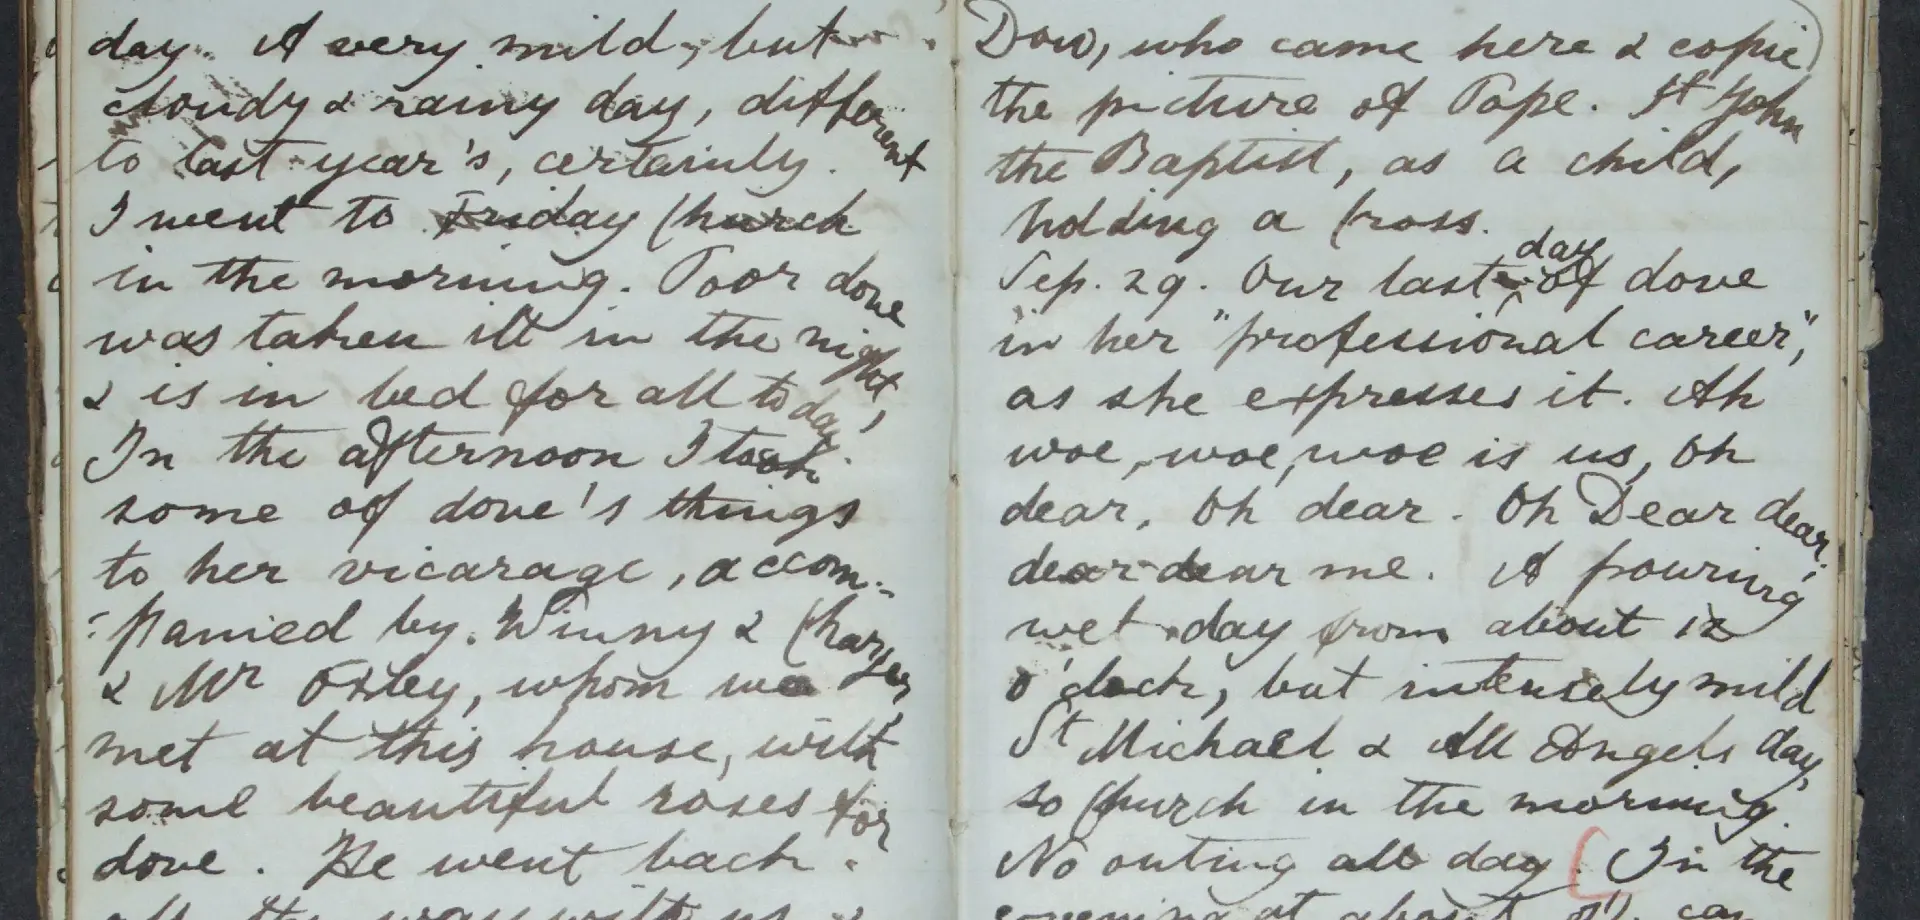 day. A very mild, but
cloudy & rainy day, different
to last year's, certainly.
I went to Friday Church
in the morning. Poor dove
was taken ill in the night,
& is in bed for all today.
In the afternoon I took
some of dove's things
to her vicarage, accom-
-panied by Winny & Charger,
& Mr Oxley, whom we
met at this house, with
some beautiful roses for
dove. He went back
all the way with us &
Dow, who came here & copie
the picture of Pope. St John
the Baptist, as a child,
holding a Cross.
Sep. 29. Our last day of dove
in her "professional career",
as she expresses it. Ah
woe, woe, woe is us, Oh
dear, Oh dear. Oh Dear dear,
dear dear me. A pouring
wet day from about 12
o'clock, but intensely mild
St Michael & All Angels day,
so Church in the morning.
No outing all day. In the
evening at about